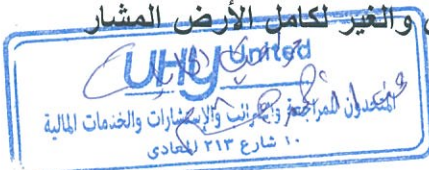 والغير لكامل الأرض المشار
UHY United
المتحدون للمراجعة والضرائب والإستشارات والخدمات المالية
١٠ شارع ٢١٣ المعادى